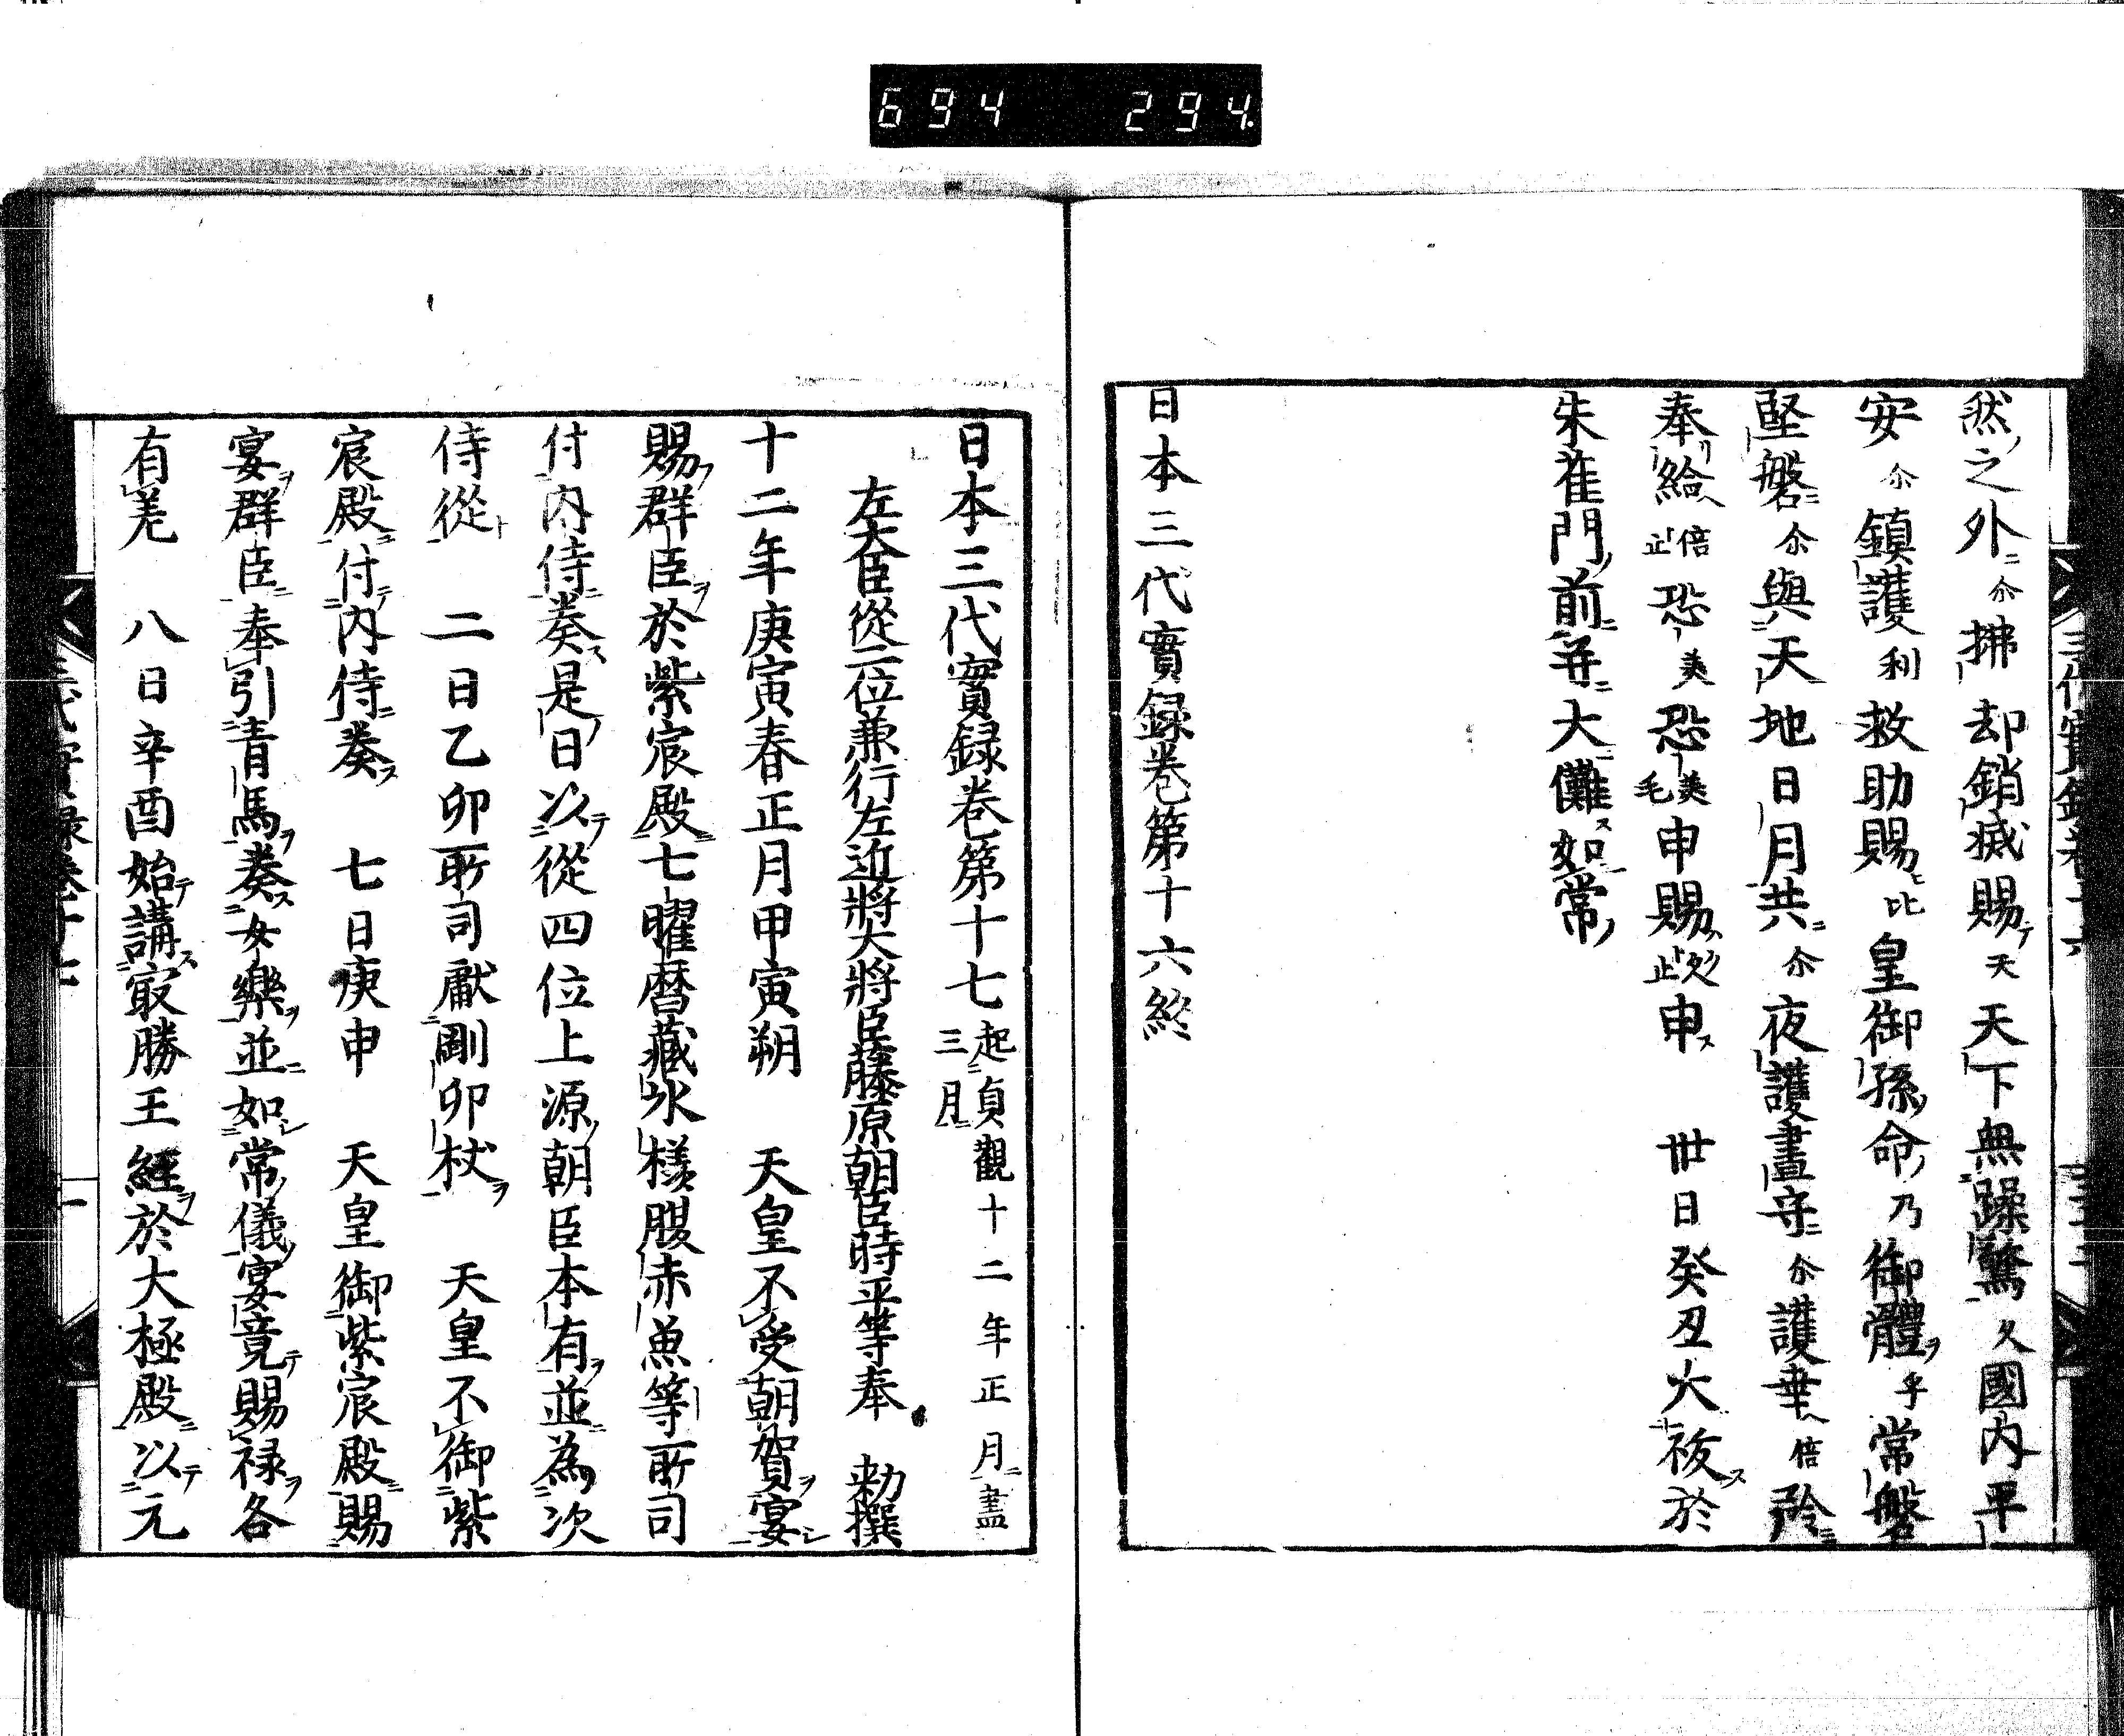 694 294
然之外尒拂却銷㓕賜天天下無躁驚久國内平
安尒鎮護利救助賜比皇御孫命乃御體乎常磐
堅磐尒與天地日月共尒夜護晝守尒護幸倍矜
奉給倍止恐美恐美毛申賜久止申 丗日癸丑大祓於
朱雀門前幷大儺如常
日本三代實録卷第十六終
日本三代實録卷第十七起貞觀十二年正月盡三月
左大臣從二位兼行左近將大將臣藤原朝臣時平等奉 勅撰
十二年庚寅春正月甲寅朔 天皇不受朝賀宴
賜群臣於紫宸殿七曜曆藏氷樣腹赤魚等所司
付内侍奏是日以從四位上源朝臣本有並為次
侍從 二日乙卯所司獻剛卯杖 天皇不御紫
宸殿付内侍奏 七日庚申 天皇御紫宸殿賜
宴群臣奉引青馬奏女樂並如常儀宴竟賜禄各
有差 八日辛酉始講㝡勝王經於大極殿以元